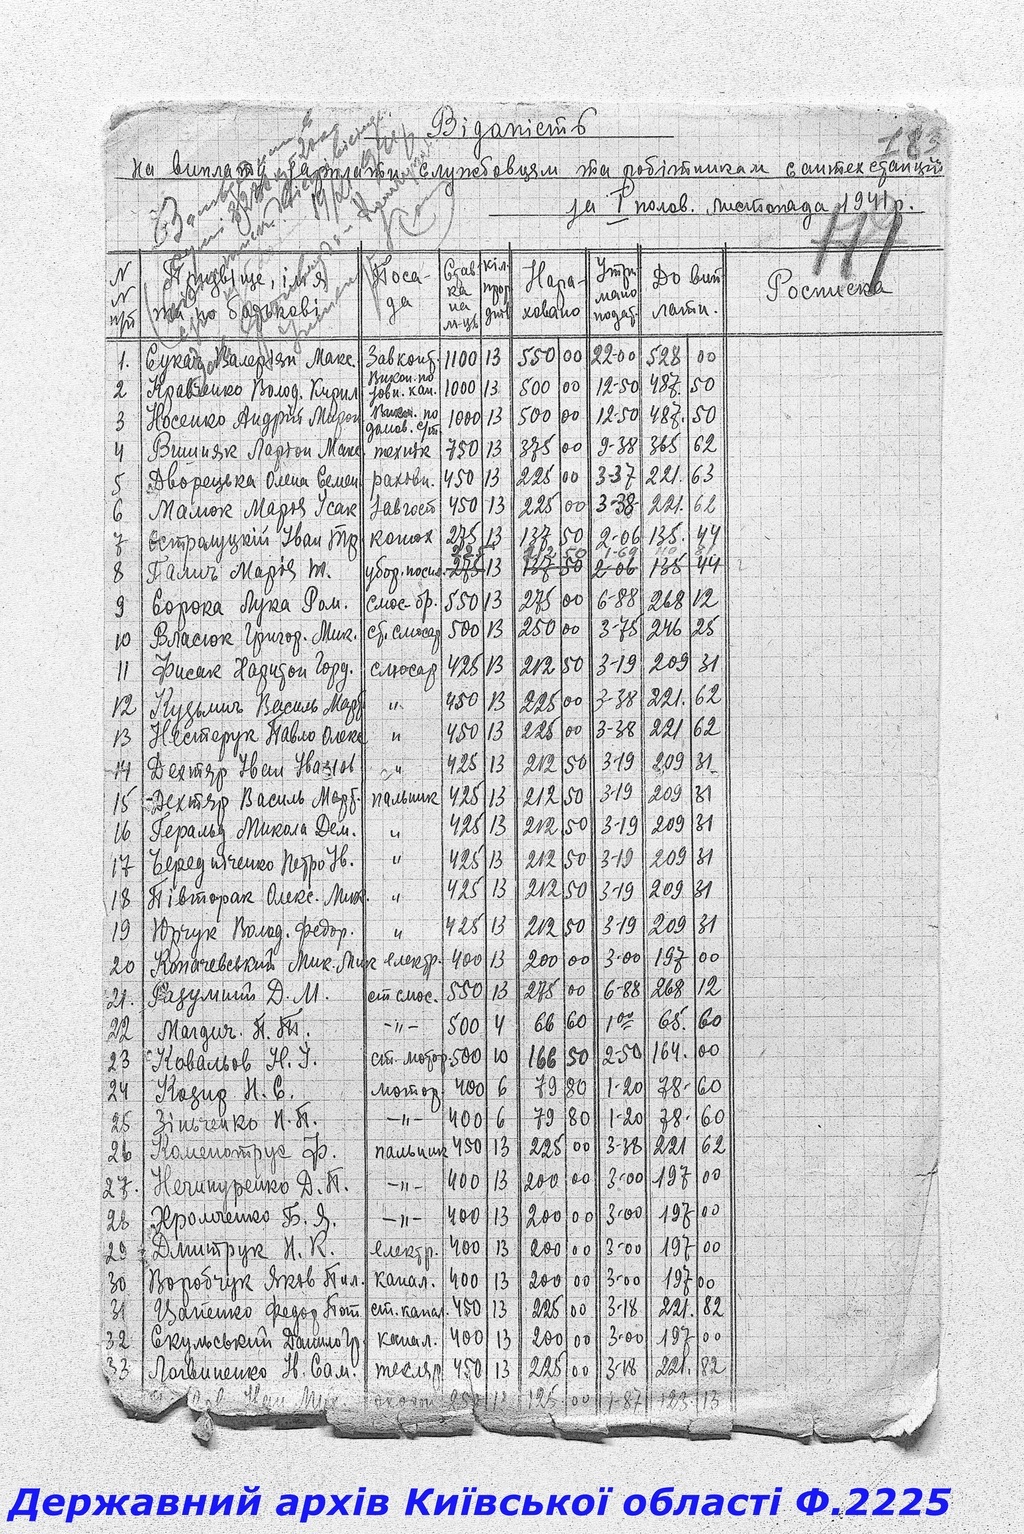 Відомість
183
на виплату зарплати службовцям та робітникам сантехстанції
за I полов. листопада 1941 р.
117
N N п/п | Прізвище, ім'я та по батькові | Посада | Ставка на м-ць | кіл. прор. днів | Нараховано | Утримано подат. | До виплати. | Росписка
1. Сукач Валеріян Макс. Зав конт. 1100 13 550 00 22-00 528 00
2 Кравченко Волод. Кирил. Викон. по 1000 13 500 00 12-50 487. 50
3 Носенко Андрій Мирон Викон. по 1000 13 500 00 12-50 487. 50
4 Вишняк Ларіон Макс. технік 750 13 375 00 9-38 365 62
5 Дворецька Олена Семен рахівн. 450 13 225 00 3-37 221. 63
6 Мамок Марія Ісак Завгосп 450 13 225 00 3-38 221. 62
7 Остролуцкій Іван Тр. конюх 275 13 137 50 2-06 135. 44
225 212 50 1-69
8 Галич Марія Т. убор. посил. 275 13 137 50 2-06 135 44
9 Сорока Лука Ром. слюс-бр. 550 13 275 00 6-88 268 12
10 Власюк Григор. Мик. ст. слюсар 500 13 250 00 3-75 246 25
11 Фисак Харитон Горд. слюсар 425 13 212 50 3-19 209 31
12 Кузьмич Василь Март " 450 13 225 00 3-38 221. 62
13 Нестерук Павло Олекс " 450 13 225 00 3-38 221 62
14 Дехтяр Іван Іванов " 425 13 212 50 3-19 209 31
15 Дехтяр Василь Март. пальник 425 13 212 50 3-19 209 31
16 Геральд Микола Дем. " 425 13 212 50 3-19 209 31
17 Чередниченко Петро Ів. " 425 13 212 50 3-19 209 31
18 Півторак Олекс. Мик. " 425 13 212 50 3-19 209 31
19 Юрчук Волод. Федор. " 425 13 212 50 3-19 209 31
20 Копачевський Мик. Мик електр. 400 13 200 00 3-00 197 00
21. Разумний Д. М. ст слюс. 550 13 275 00 6-88 268 12
22 Магдич. П. Т. -"- 500 4 66 60 1 00 65. 60
23 Ковальов Н. І. ст. мотор. 500 10 166 50 2-50 164. 00
24 Козир Н. С. мотор 400 6 79 80 1-20 78- 60
25 Зінченко Н. П. -"- 400 6 79 80 1-20 78- 60
26 Каменотрус Ф. пальник 450 13 225 00 3-38 221 62
27. Нечипуренко Д. П. -"- 400 13 200 00 3-00 197 00
28 Хромченко Б. Я. -"- 400 13 200 00 3-00 197 00
29 Дмитрук Н. К. електр. 400 13 200 00 3-00 197 00
30 Воробчук Яков Пил. канал. 400 13 200 00 3-00 197 00
31 Цапенко Федор Пот. ст. канал. 450 13 225 00 3-18 221. 82
32 Скульський Данило Гр. канал. 400 13 200 00 3-00 197 00
33 Логвиненко Н. Сам. тесляр 450 13 225 00 3-18 221. 82
Іван Мих. 250 13 125 00 1-87 123 13
Державний архів Київської області Ф.2225